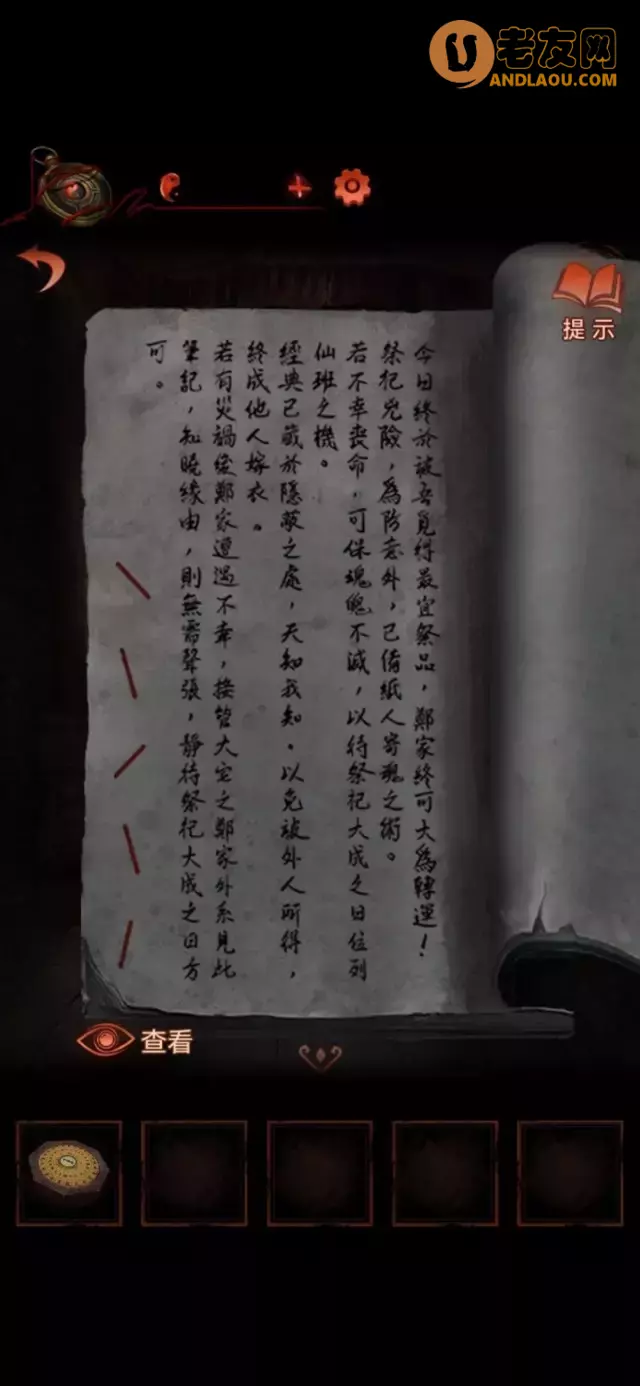 老友网
ANDLAOU.COM
提示
今日終於被吾覓得最宜祭品，鄭家終可大為轉運！
祭祀兇險，為防意外，已備紙人寄魂之術。
若不幸喪命，可保魂魄不滅，以待祭祀大成之日位列
仙班之機。
經典已藏於隱蔽之處，天知我知。以免被外人所得，
終成他人嫁衣。
若有災禍使鄭家遭遇不幸，接管大宅之鄭家外系見此
筆記，知曉緣由，則無需聲張，靜待祭祀大成之日方
可。
查看